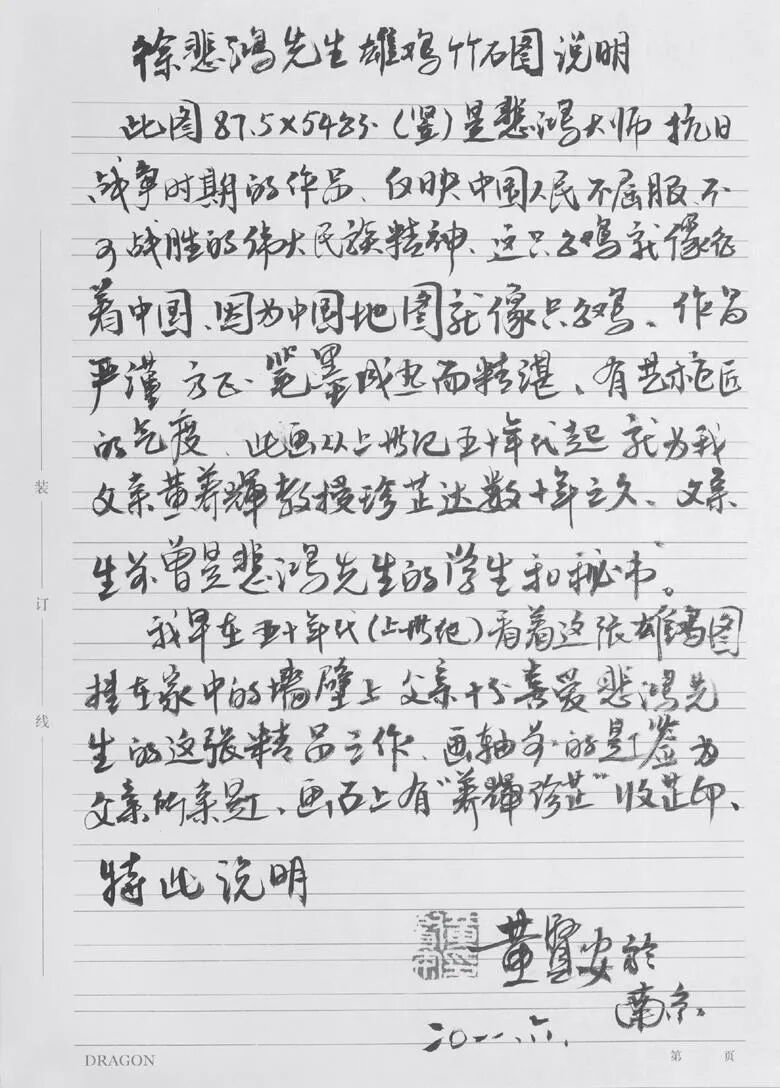 徐悲鸿先生雄鸡竹石图说明
此图87.5×54公分(竖)是悲鸿大师抗日
战争时期的作品、反映中国人民不屈服、不
可战胜的伟大民族精神、这只公鸡就像征
着中国、因为中国地图就像只公鸡、作品
严谨方正、笔墨成熟而精湛、有艺术巨匠
的气度、此画从上世纪五十年代起就为我
父亲黄养辉教授珍芷达数十年之久、父亲
生前曾是悲鸿先生的学生和秘书。
我早在五十年代(上世纪)看着这张雄鸡图
挂在家中的墙壁上父亲十分喜爱悲鸿先
生的这张精品之作、画轴前的题签为
父亲所亲题、画石上有"养辉珍芷"收芷印、
特此说明
黄贤安於
南京
二〇一一.六.
装
订
线
DRAGON
第 页